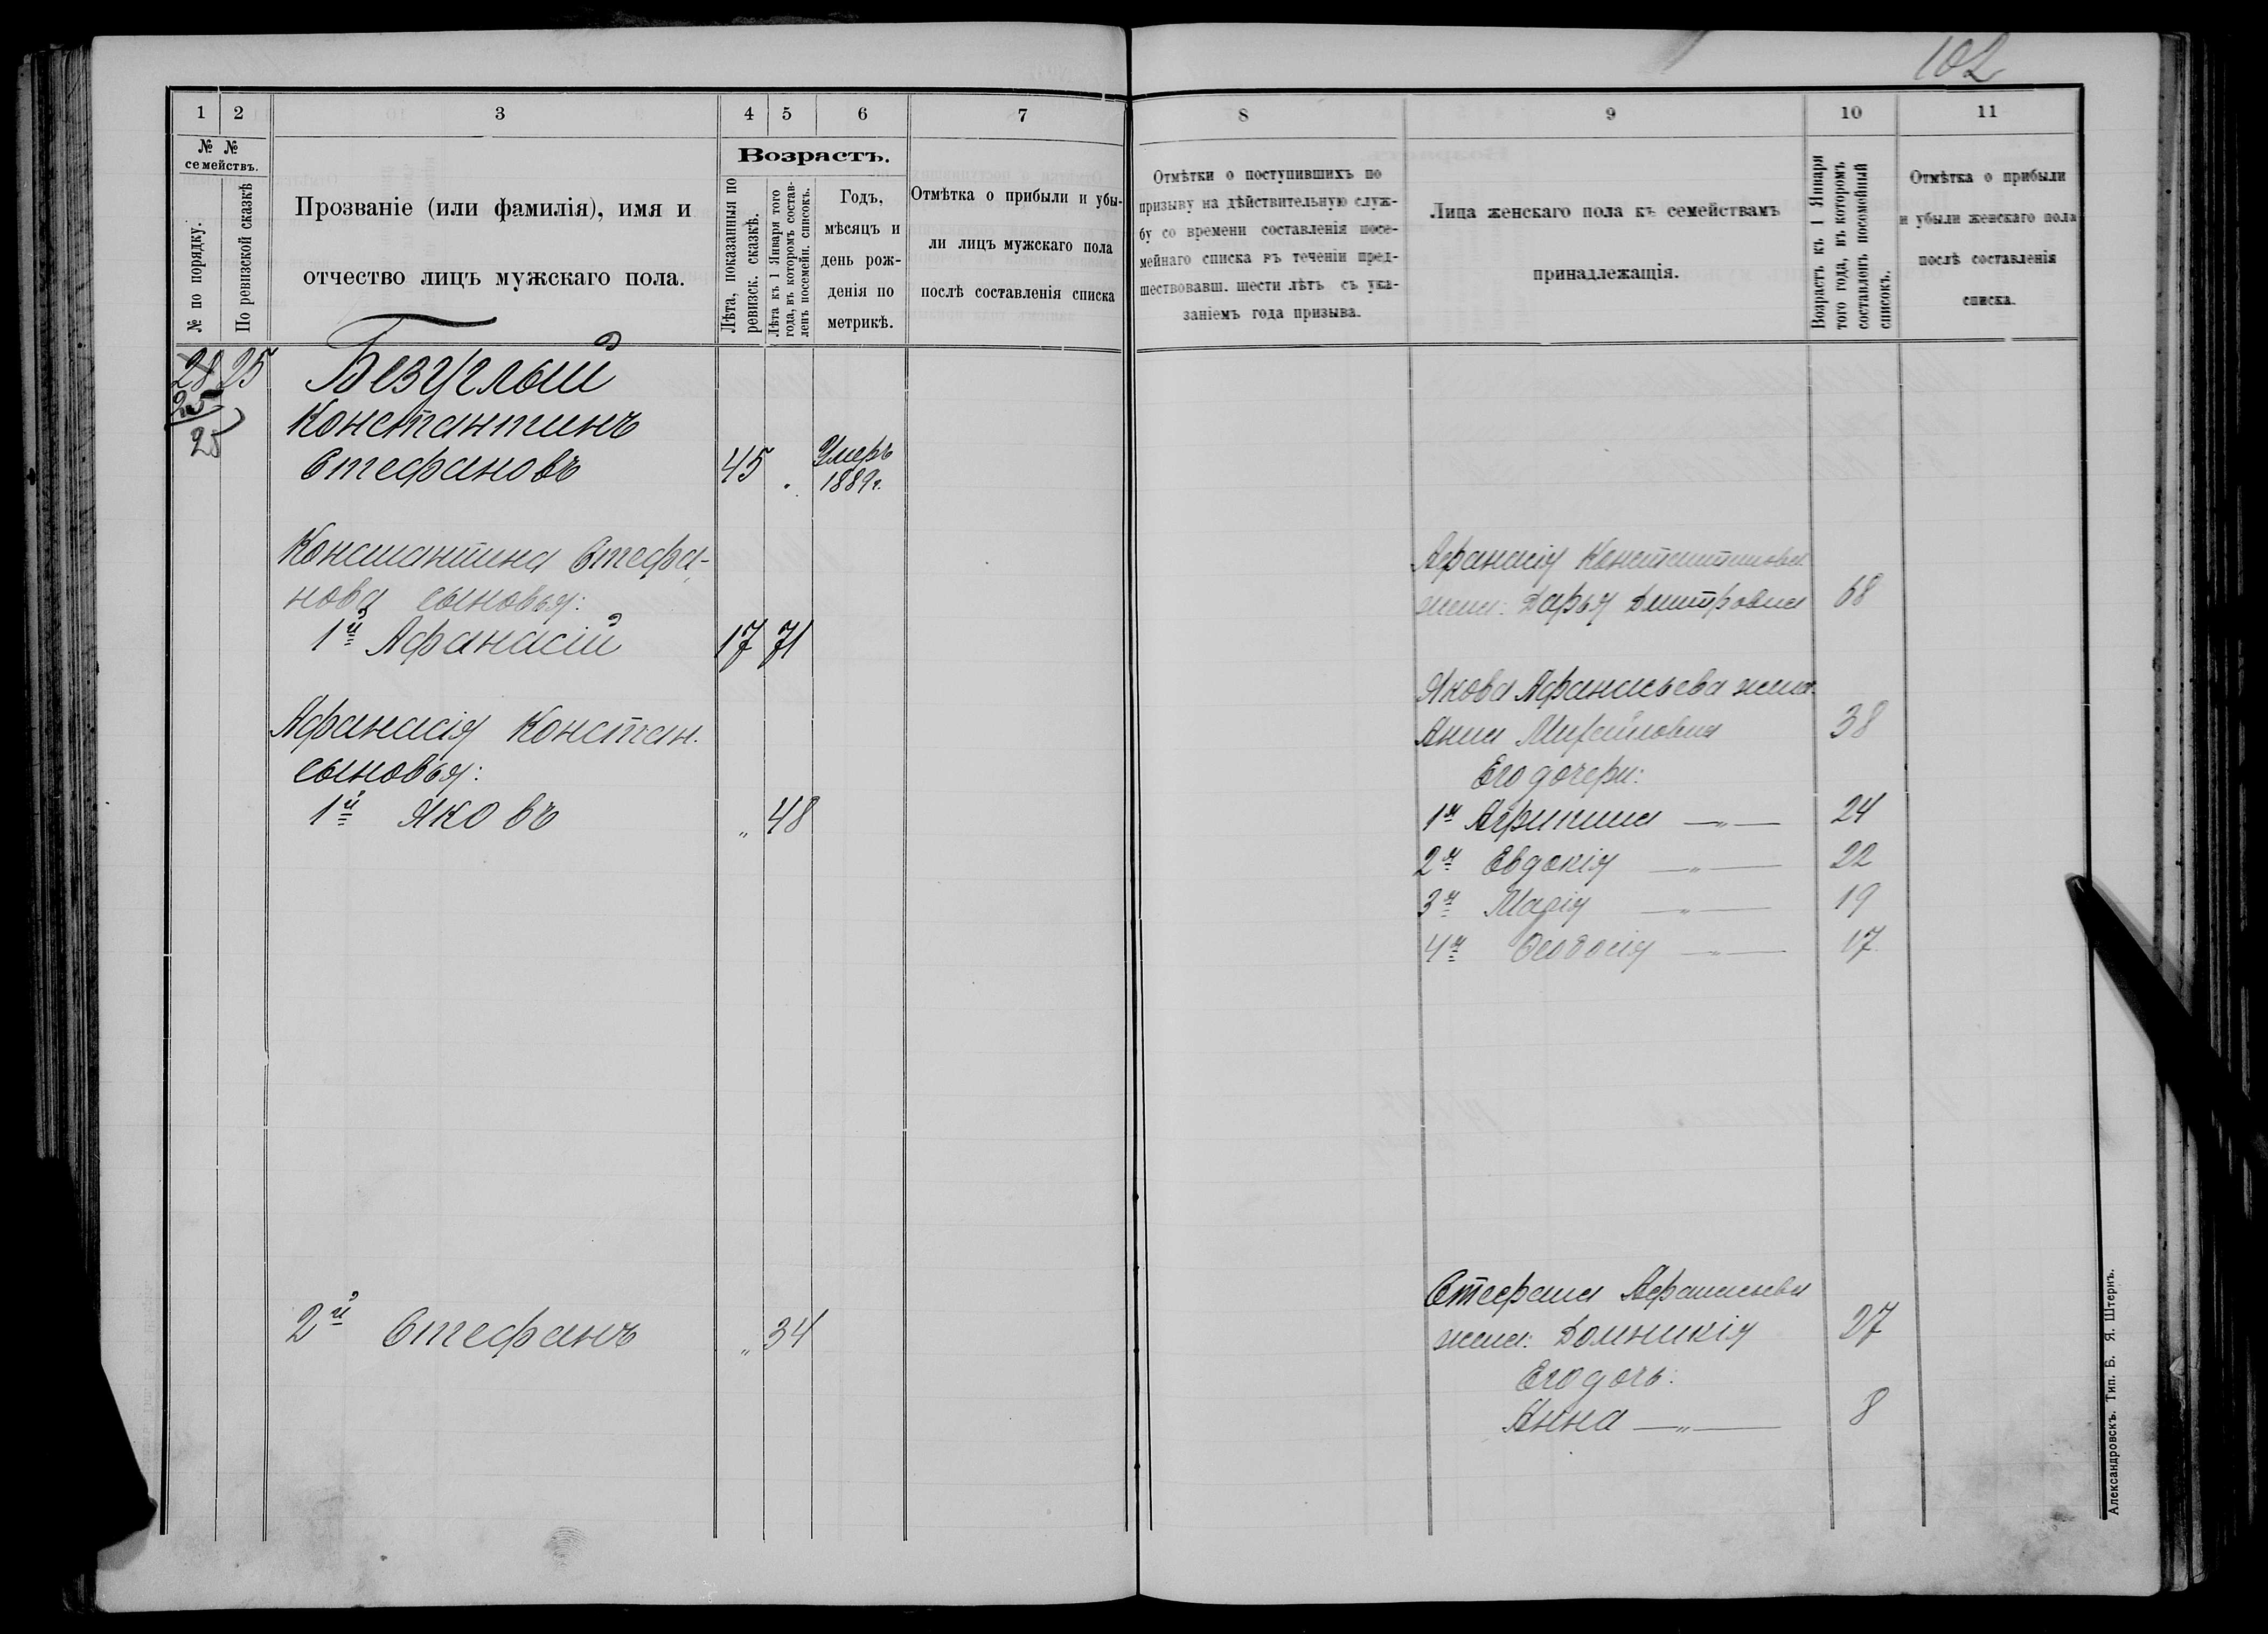 102
1 2 3 4 5 6 7
№ № семействъ.
№ по порядку.
По ревизской сказкѣ
Прозваніе (или фамилія), имя и
отчество лицъ мужскаго пола.
Возрастъ.
Лѣта, показанныя по
ревизск. сказкѣ.
Лѣта къ 1 Января того
года, въ которомъ состав-
ленъ посемейн. списокъ.
Годъ,
мѣсяцъ и
день рож-
денія по
метрикѣ.
Отмѣтка о прибыли и убы-
ли лицъ мужскаго пола
послѣ составленія списка
28 25 Безуглый
25
Константинъ
25
Стефановъ 45 Умеръ
1889 г.
Константина Стефа-
нова сыновья:
1й Афанасій 17 71
Афанасія Констан.
сыновья:
1й Яковъ „ 48
2й Стефанъ „ 34
8 9 10 11
Отмѣтки о поступившихъ по
призыву на дѣйствительную служ-
бу со времени составленія посе-
мейнаго списка въ теченіи пред-
шествовавш. шести лѣтъ съ ука-
заніемъ года призыва.
Лица женскаго пола къ семействамъ
принадлежащія.
Возрастъ къ 1 Января
того года, въ которомъ
составленъ посемейный
списокъ.
Отмѣтка о прибыли
и убыли женскаго пола
послѣ составленія
списка.
Афанасія Константинова
жена: Дарья Дмитровна 68
Якова Афанасьева жена
Анна Михайловна 38
Его дочери:
1я Агрипина —„— 24
2я Евдокія —„— 22
3я Марія —„— 19
4я Феодосія —„— 17
Стефана Афанасьева
жена: Домникія 27
Его дочь:
Анна —„— 8
Александровскъ. Тип. Б. Я. Штернъ.